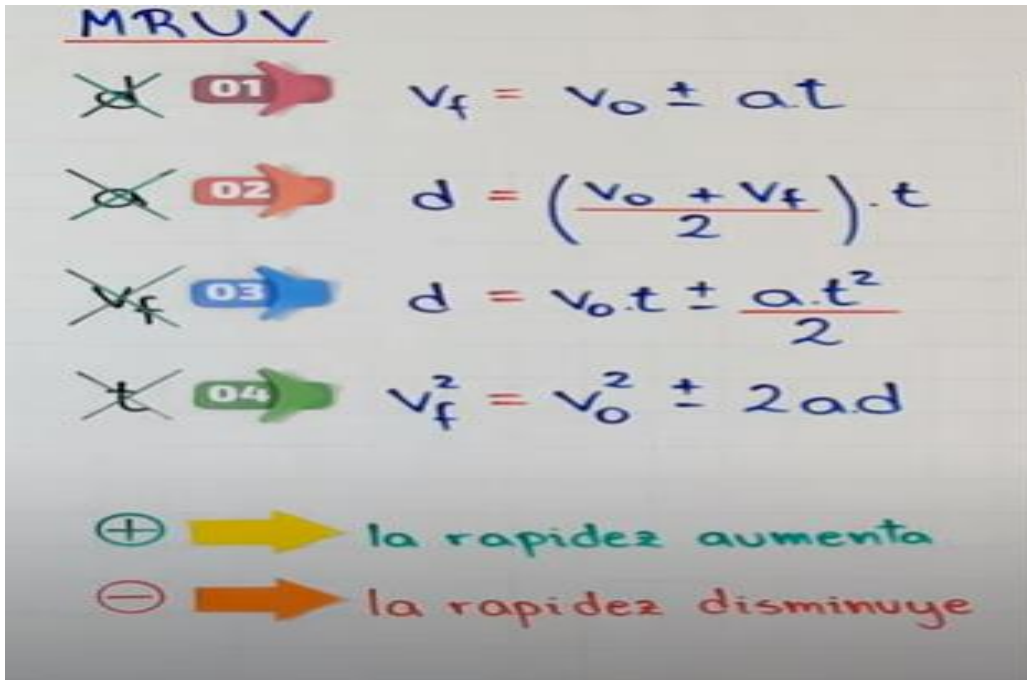 MRUV
d 01 Vf = Vo ± at
a 02 d = (Vo + Vf / 2) . t
Vf 03 d = Vo.t ± a.t² / 2
t 04 Vf² = Vo² ± 2ad
+ la rapidez aumenta
− la rapidez disminuye